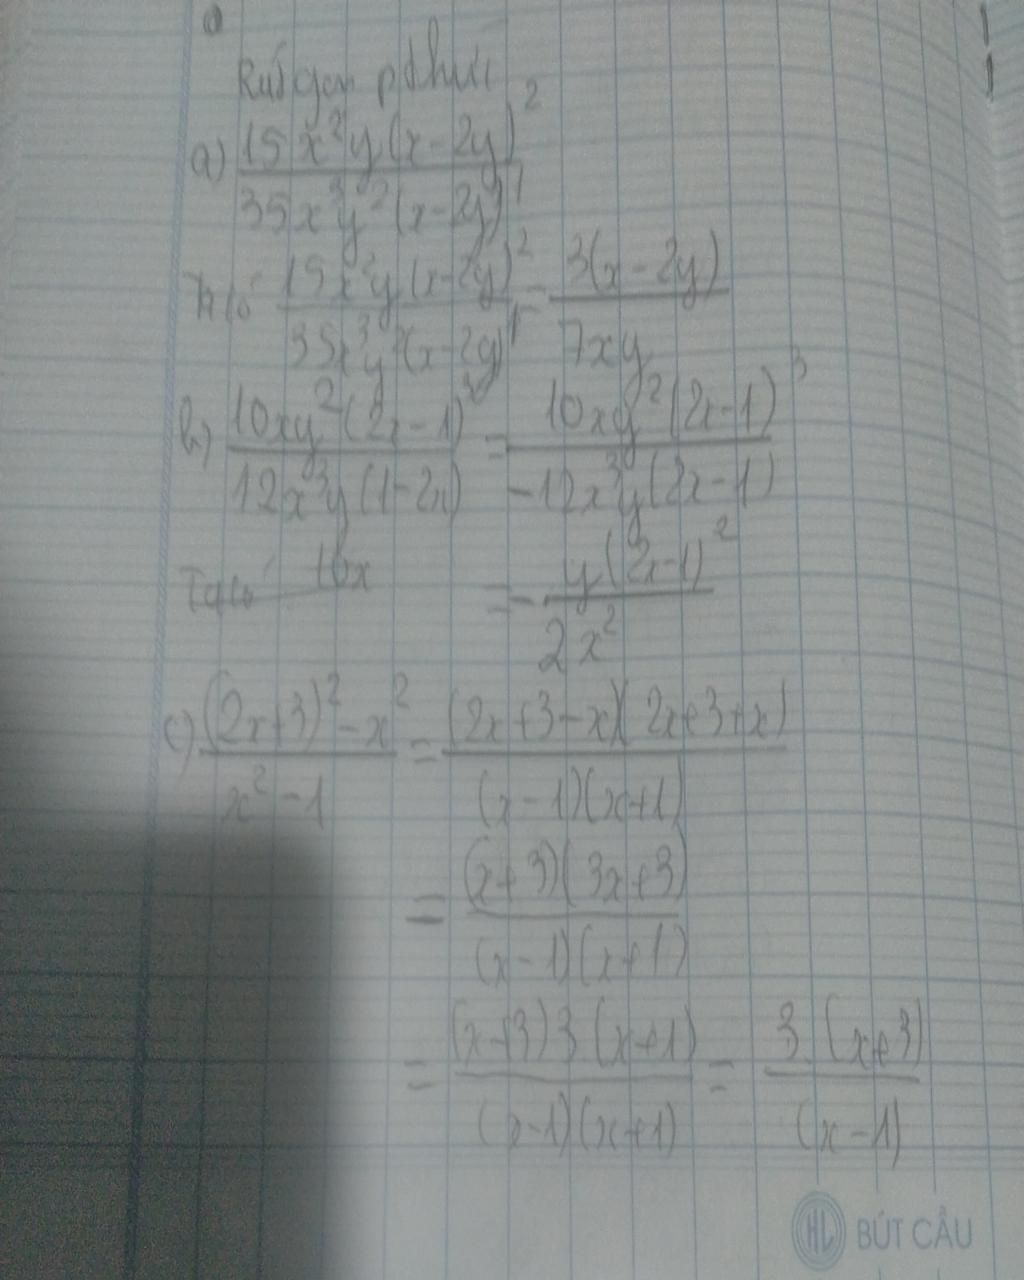 Rút gọn p thức
a) \frac{15x^2y(x-2y)^2}{35x^3y^2(x-2y)^1}
Ta có \frac{15x^2y(x-2y)^2}{35x^3y^2(x-2y)^1} = \frac{3(x-2y)}{7xy}
b) \frac{10xy^2(2x-1)^3}{12x^3y(1-2x)} = \frac{10xy^2(2x-1)^3}{-12x^3y(2x-1)}
Ta có 10x = -\frac{y(2x-1)^2}{2x^2}
c) \frac{(2x+3)^2-x^2}{x^2-1} = \frac{(2x+3-x)(2x+3+x)}{(x-1)(x+1)}
= \frac{(x+3)(3x+3)}{(x-1)(x+1)}
= \frac{(x+3)3.(x+1)}{(x-1)(x+1)} = \frac{3.(x+3)}{(x-1)}
HL BÚT CÂU